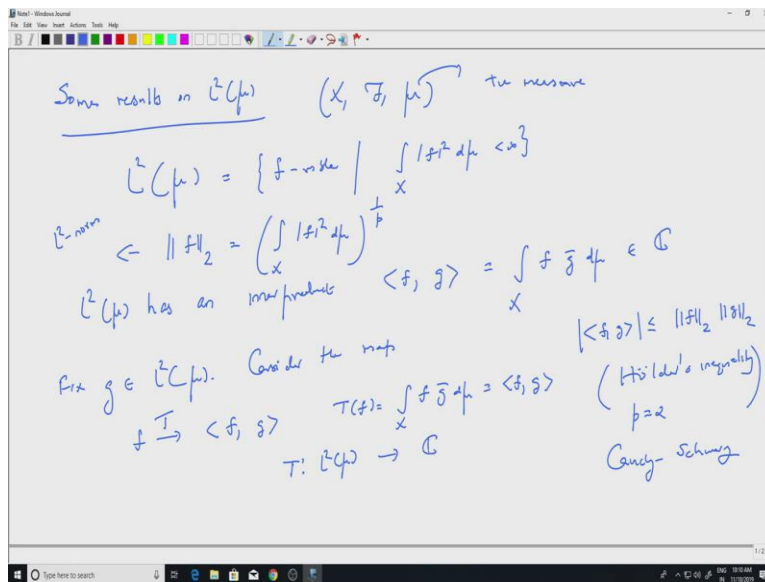 Note1 - Windows Journal
File Edit View Insert Actions Tools Help
B I
Some results on L²(μ) (X, F, μ) +ve measure
L²(μ) = { f - msble | ∫_X |f|² dμ < ∞ }
L²-norm ← ||f||₂ = ( ∫_X |f|² dμ )^{1/p}
L²(μ) has an inner product <f, g> = ∫_X f ḡ dμ ∈ ℂ
|<f, g>| ≤ ||f||₂ ||g||₂
(Hölder's inequality
p=2
Cauchy-Schwarz
Fix g ∈ L²(μ). Consider the map
f →^T <f, g> T(f) = ∫_X f ḡ dμ = <f, g>
T: L²(μ) → ℂ
1/2
Type here to search
ENG 10:10 AM
IN 11/18/2019